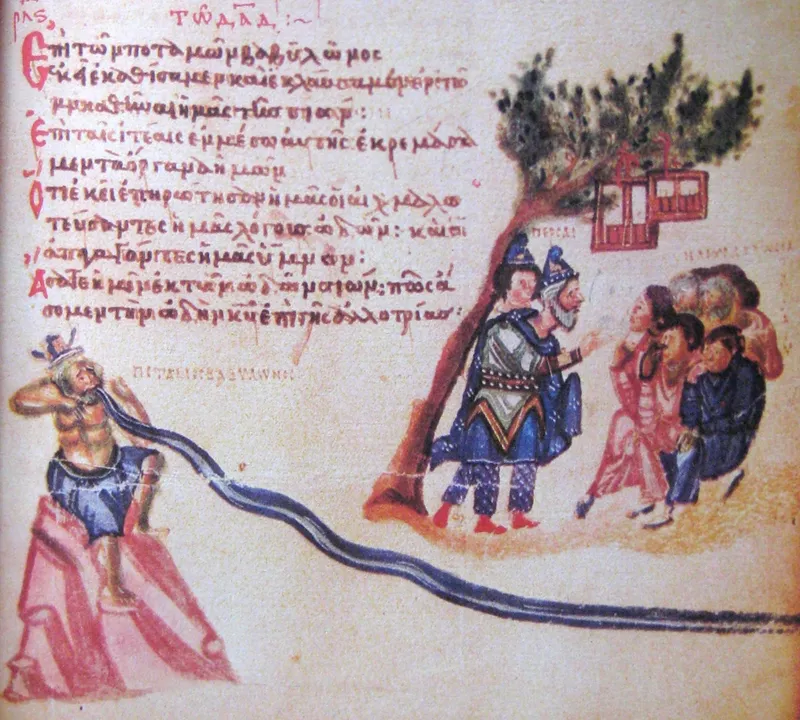 τῶ δᾱδ :~
Ἐπὶ τῶν ποταμῶν βαβυλῶνος
ἐκεῖ ἐκαθίσαμεν καὶ ἐκλαύσαμεν ἐν τῶ
μνησθῆναι ἡμᾶς τῆς σιών :
Ἐπὶ ταῖς ἰτέαις ἐν μέσω αὐτῆς ἐκρεμάσα
μεν τὰ ὄργανα ἡμῶν
Ὅτι ἐκεῖ ἐπηρώτησαν ἡμᾶς οἱ αἰχμαλω
τεύσαντες ἡμᾶς λόγους ὠδῶν : καὶ οἱ
ἀπαγαγόντες ἡμᾶς ὕμνον :
Ἄσατε ἡμῖν ἐκ τῶν ὠδῶν σιών : πῶς ἄ
σομεν τὴν ὠδὴν κῡ ἐπὶ γῆς ἀλλοτρίας :
ΠΕΡΣΑΙ